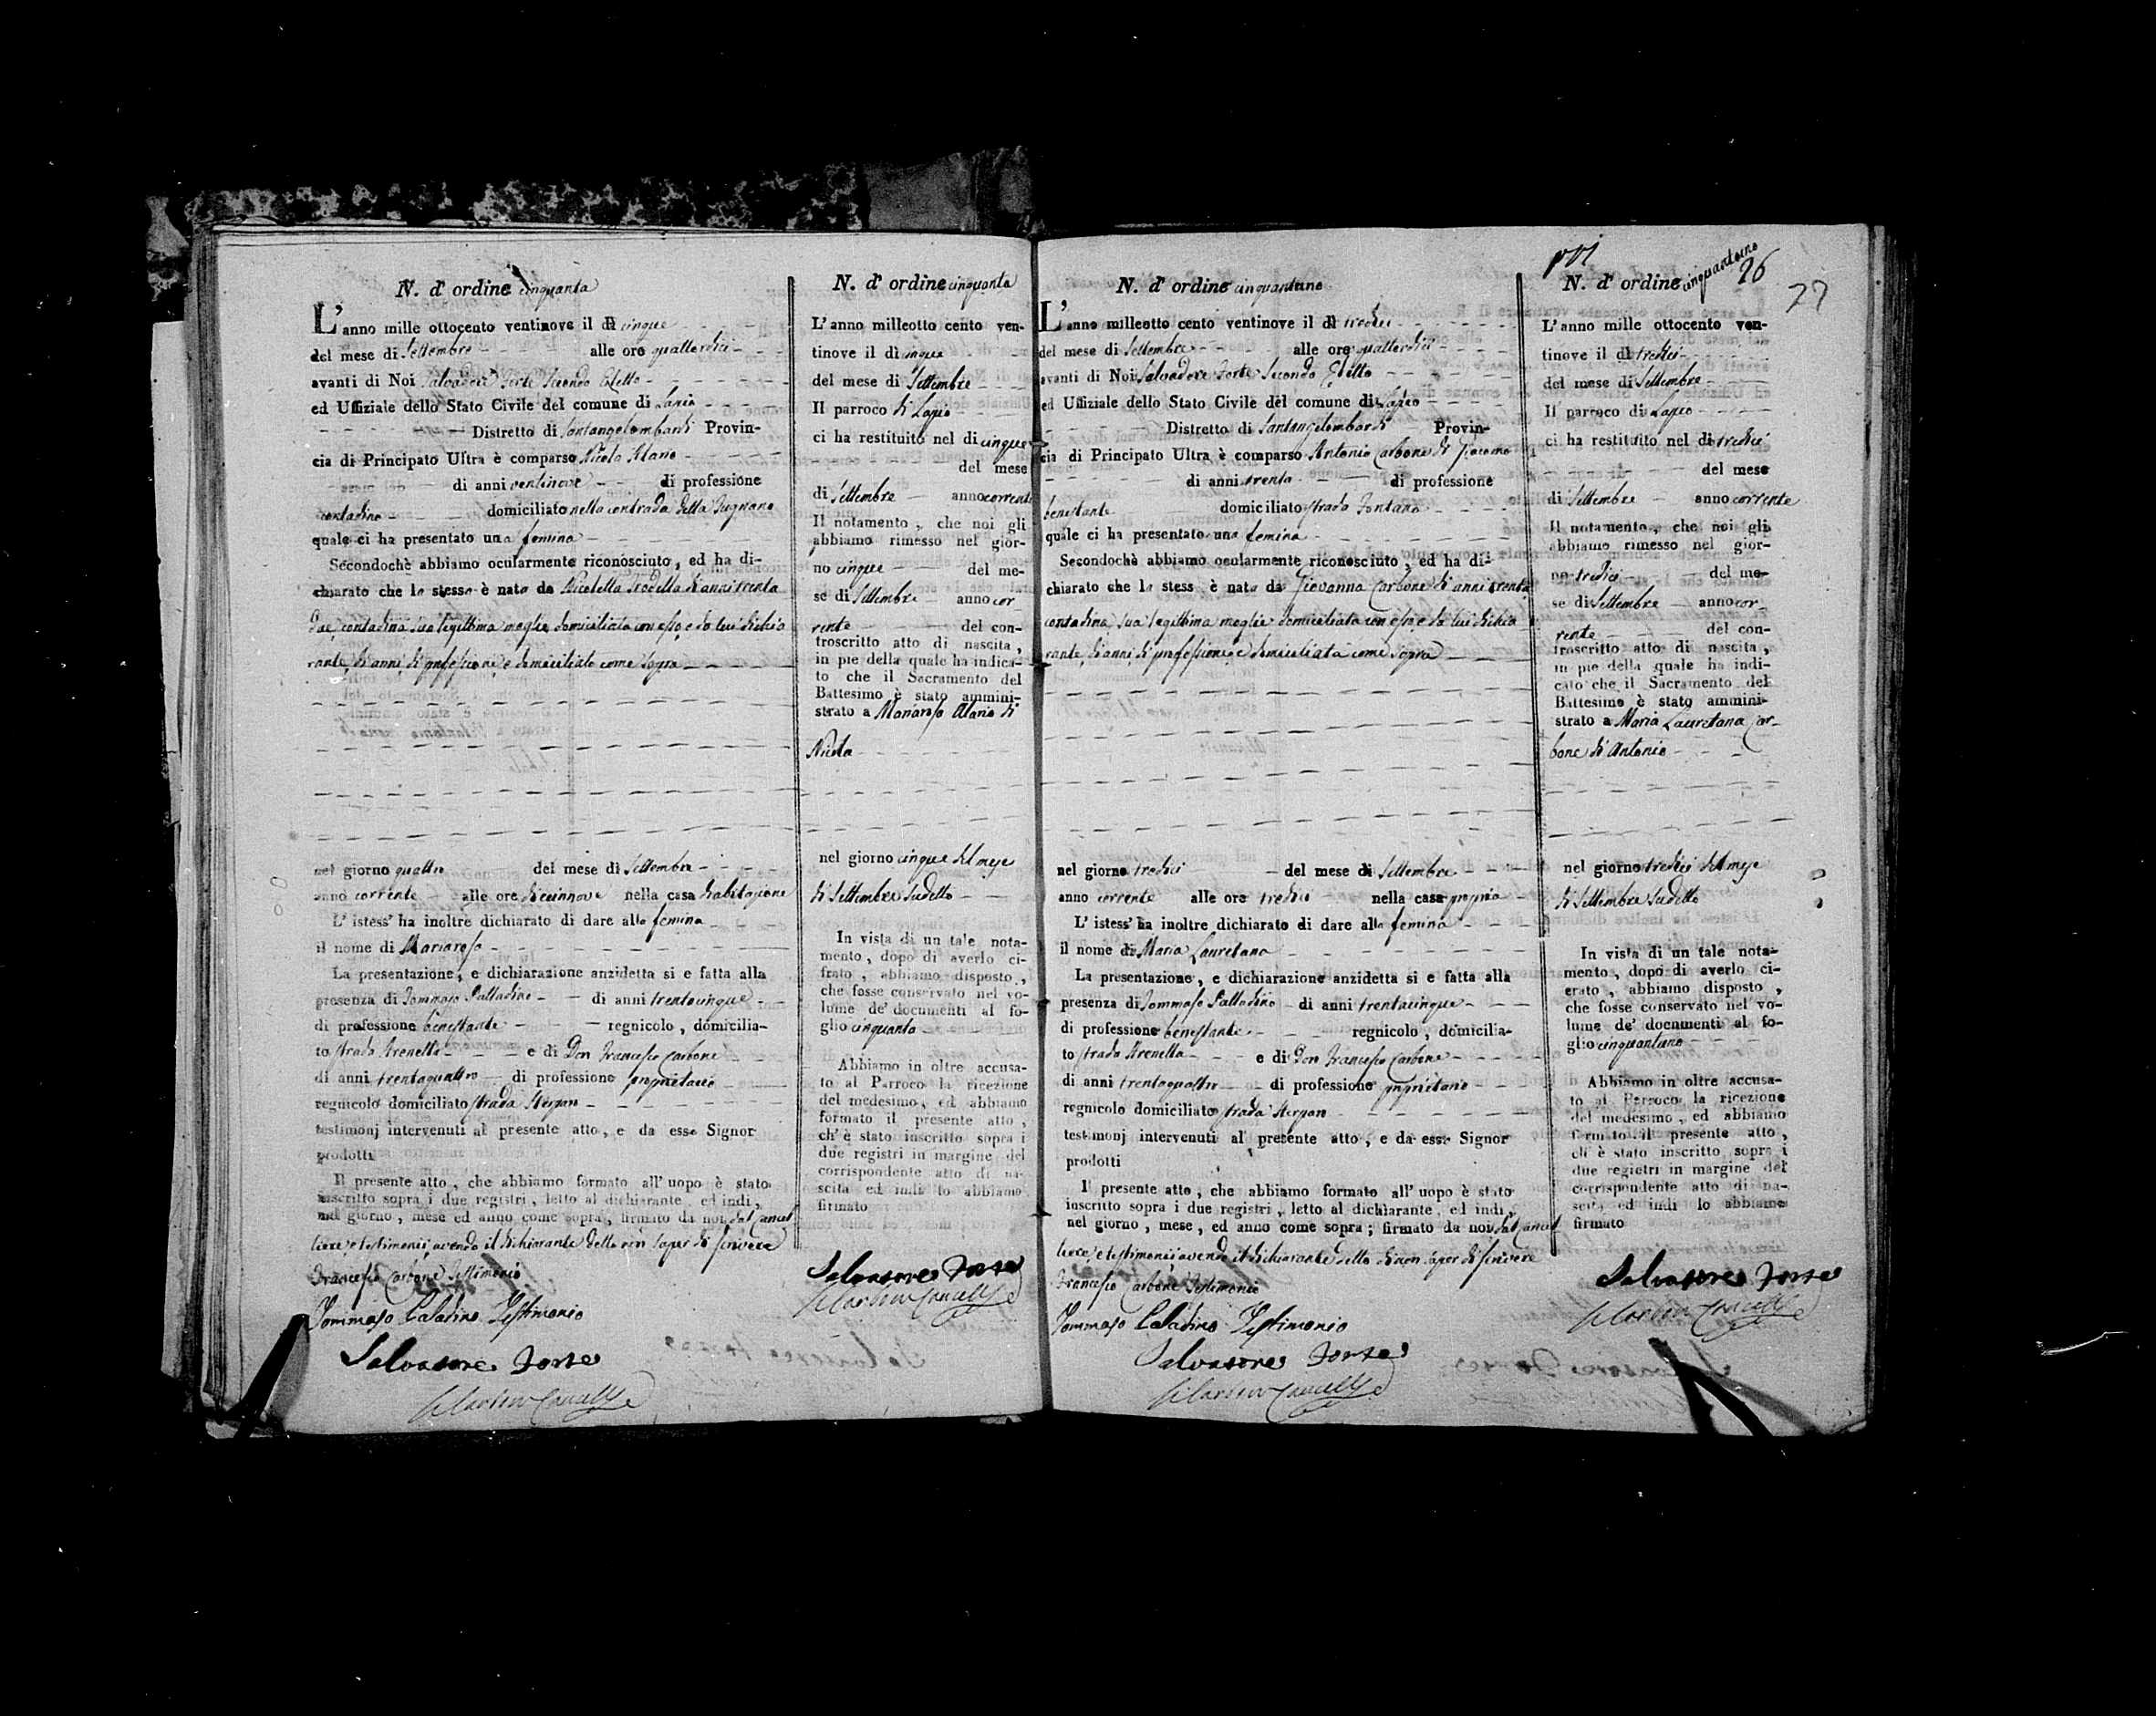 N. d'ordine cinquanta
L'anno mille ottocento ventinove il dì cinque
del mese di Settembre alle ore quattordici
avanti di Noi Salvadore Forte Secondo Eletto
ed Uffiziale dello Stato Civile del comune di Lapio
Distretto di Santangelombardi Provin-
cia di Principato Ultra è comparso Nicola Alario
di anni ventinove di professione
contadino domiciliato nella contrada della
quale ci ha presentato una femina
Secondochè abbiamo ocularmente riconosciuto, ed ha di-
chiarato che la stessa è nata da Nicoletta di anni trenta
due, contadina sua legittima moglie domiciliata con esso, e da lui dichia
rante, di anni, di professione, e domiciliato come sopra
nel giorno quattro del mese di Settembre
anno corrente alle ore diecinnove nella casa d'abitazione
L'istess' ha inoltre dichiarato di dare alla femina
il nome di Mariarosa
La presentazione, e dichiarazione anzidetta si e fatta alla
presenza di Tommaso Palladino di anni trentacinque
di professione benestante regnicolo, domicilia-
to strada Arenella e di Don Francesco Carbone
di anni trentaquattro di professione proprietario
regnicolo domiciliato strada
testimonj intervenuti al presente atto, e da esso Signor
prodotti
Il presente atto, che abbiamo formato all'uopo è stato
inscritto sopra i due registri, letto al dichiarante, ed indi,
nel giorno, mese ed anno come sopra, firmato da noi, dal Cancel
liere, e testimonij avendo il dichiarante detto non saper di scrivere
Francesco Carbone Testimonio
Tommaso Paladino Testimonio
Salvatore Forte
N. d'ordine cinquanta
L'anno milleotto cento ven-
tinove il dì cinque
del mese di Settembre
Il parroco di Lapio
ci ha restituito nel di cinque
del mese
di Settembre anno corrente
Il notamento, che noi gli
abbiamo rimesso nel gior-
no cinque del me-
se di Settembre anno cor
rente del con-
troscritto atto di nascita,
in piè della quale ha indica-
to che il Sacramento del
Battesimo è stato ammini-
strato a Mariarosa Alario di
Nicola
nel giorno cinque del mese
di Settembre sudetto
In vista di un tale nota-
mento, dopo di averlo ci-
frato, abbiamo disposto,
che fosse conservato nel vo-
lume de' documenti al fo-
glio cinquanta
Abbiamo in oltre accusa-
to al Parroco la ricezione
del medesimo, ed abbiamo
formato il presente atto,
ch'è stato inscritto sopra i
due registri in margine del
corrispondente atto di na-
scita ed indi lo abbiamo
firmato
Salvatore Forte
N. d'ordine cinquantuno
L'anno milleotto cento ventinove il dì tredici
del mese di Settembre alle ore quattordici
avanti di Noi Salvadore Forte Secondo Eletto
ed Uffiziale dello Stato Civile del comune di Lapio
Distretto di Santangelombardi Provin-
cia di Principato Ultra è comparso Antonio Carbone di Giacomo
di anni trenta di professione
benestante domiciliato strada Fontana
quale ci ha presentato una femina
Secondochè abbiamo ocularmente riconosciuto, ed ha di-
chiarato che la stess è nata da Giovanna Carbone di anni trenta
contadina, sua legittima moglie domiciliata con esso, e da lui dichia
rante, di anni, di professione, e domiciliata come sopra
nel giorno tredici del mese di Settembre
anno corrente alle ore tredici nella casa propria
L'istess' ha inoltre dichiarato di dare alla femina
il nome di Maria Lauretana
La presentazione, e dichiarazione anzidetta si e fatta alla
presenza di Tommaso Palladino di anni trentacinque
di professione benestante regnicolo, domicilia-
to strada Arenella e di Don Francesco Carbone
di anni trentaquattro di professione proprietario
regnicolo domiciliato strada
testimonj intervenuti al presente atto, e da esso Signor
prodotti
I presente atto, che abbiamo formato all'uopo è stato
inscritto sopra i due registri, letto al dichiarante, ed indi,
nel giorno, mese, ed anno come sopra; firmato da noi, dal Cancel
liere, e testimonij avendo il dichiarante detto di non saper di scrivere
Francesco Carbone Testimonio
Tommaso Paladino Testimonio
Salvatore Forte
26
77
N. d'ordine cinquantuno
L'anno mille ottocento ven-
tinove il dì tredici
del mese di Settembre
Il parroco di Lapio
ci ha restituito nel di tredici
del mese
di Settembre anno corrente
Il notamento, che noi gli
abbiamo rimesso nel gior-
no tredici del me-
se di Settembre anno cor-
rente del con-
troscritto atto di nascita,
in piè della quale ha indi-
cato che il Sacramento del
Battesimo è stato ammini-
strato a Maria Lauretana Car-
bone di Antonio
nel giorno tredici del mese
di Settembre sudetto
In vista di un tale nota-
mento, dopo di averlo ci-
erato, abbiamo disposto,
che fosse conservato nel vo-
lume de' documenti al fo-
glio cinquantuno
Abbiamo in oltre accusa-
to al Parroco la ricezione
del medesimo, ed abbiamo
formato il presente atto,
ch è stato inscritto sopra i
due registri in margine del
corrispondente atto di na-
scita ed indi lo abbiamo
firmato
Salvatore Forte